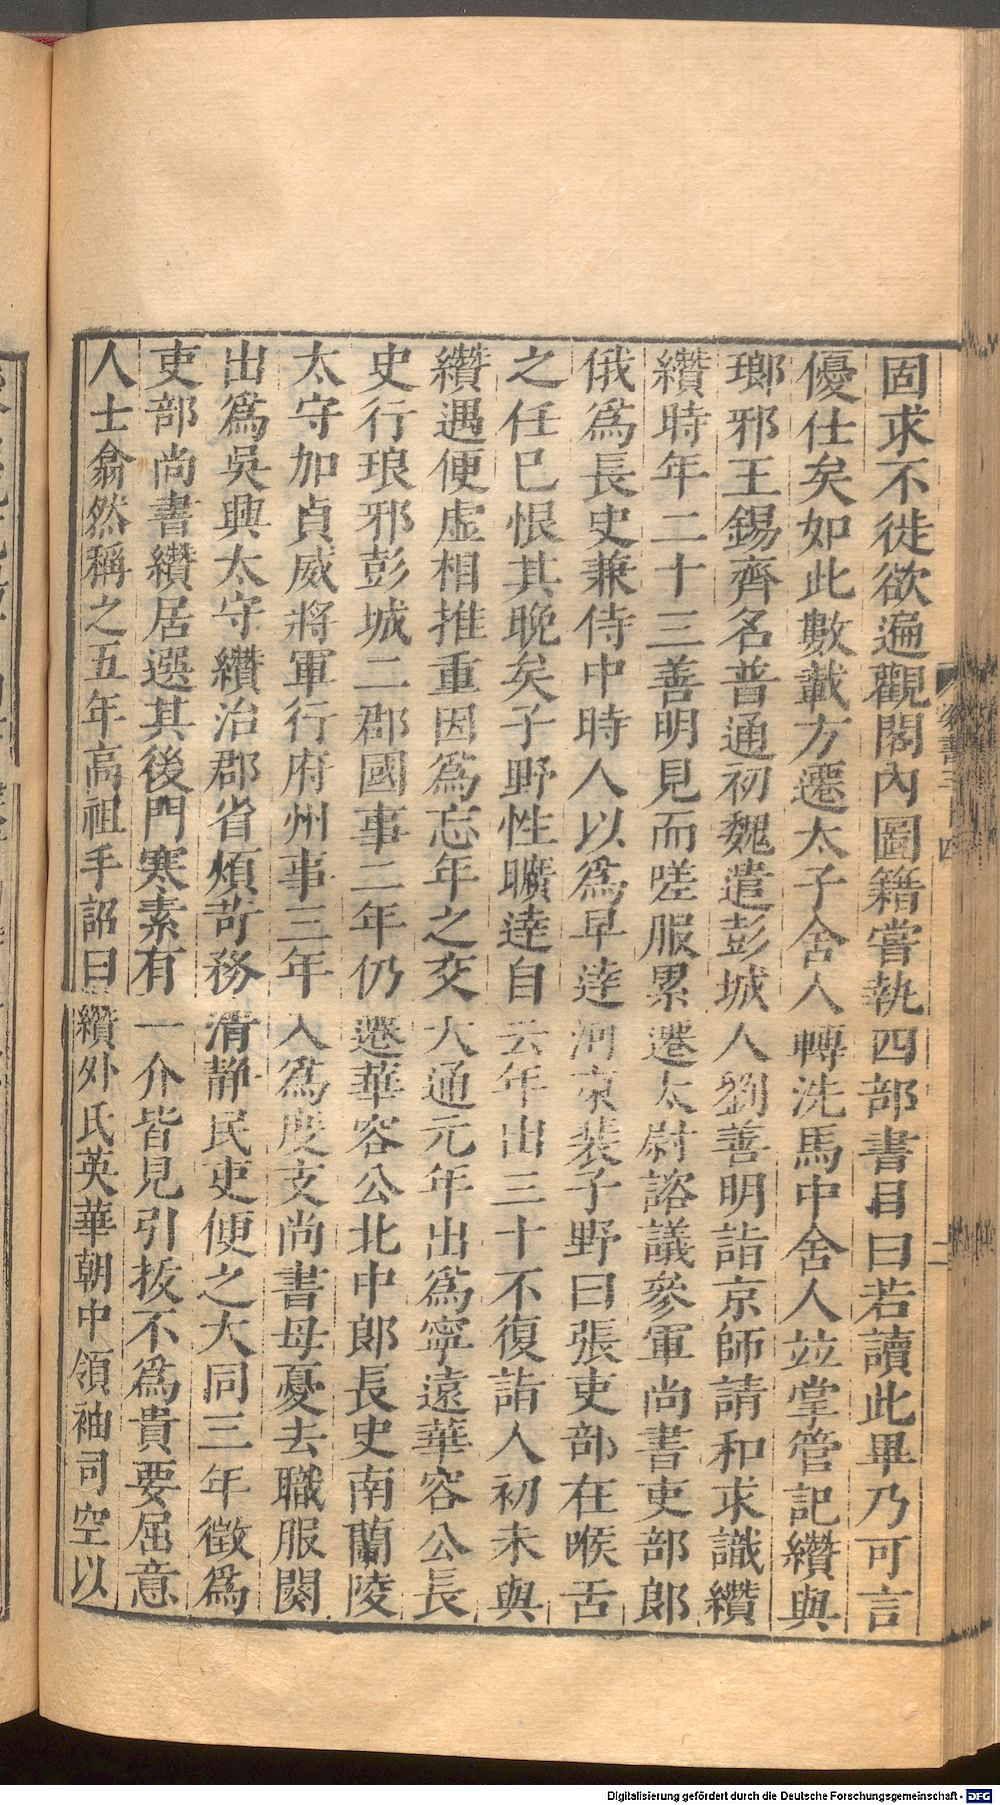 固求不徙欲遍觀閣內圖籍嘗執四部書目曰若讀此畢乃可言
優仕矣如此數載方遷太子舍人轉洗馬中舍人竝掌管記纘與
瑯邪王錫齊名普通初魏遣彭城人劉善明詣京師請和求識纘
纘時年二十三善明見而嗟服累遷太尉諮議參軍尚書吏部郎
俄爲長史兼侍中時人以爲早達河東裴子野曰張吏部在喉舌
之任已恨其晚矣子野性曠達自云年出三十不復詣人初未與
纘遇便虛相推重因爲忘年之交大通元年出爲寧遠華容公長
史行琅邪彭城二郡國事二年仍遷華容公北中郎長史南蘭陵
太守加貞威將軍行府州事三年入爲度支尚書母憂去職服闋
出爲吳興太守纘治郡省煩苛務清靜民吏便之大同三年徵爲
吏部尚書纘居選其後門寒素有一介皆見引拔不爲貴要屈意
人士翕然稱之五年高祖手詔曰纘外氏英華朝中領袖司空以
Digitalisierung gefördert durch die Deutsche Forschungsgemeinschaft - DFG